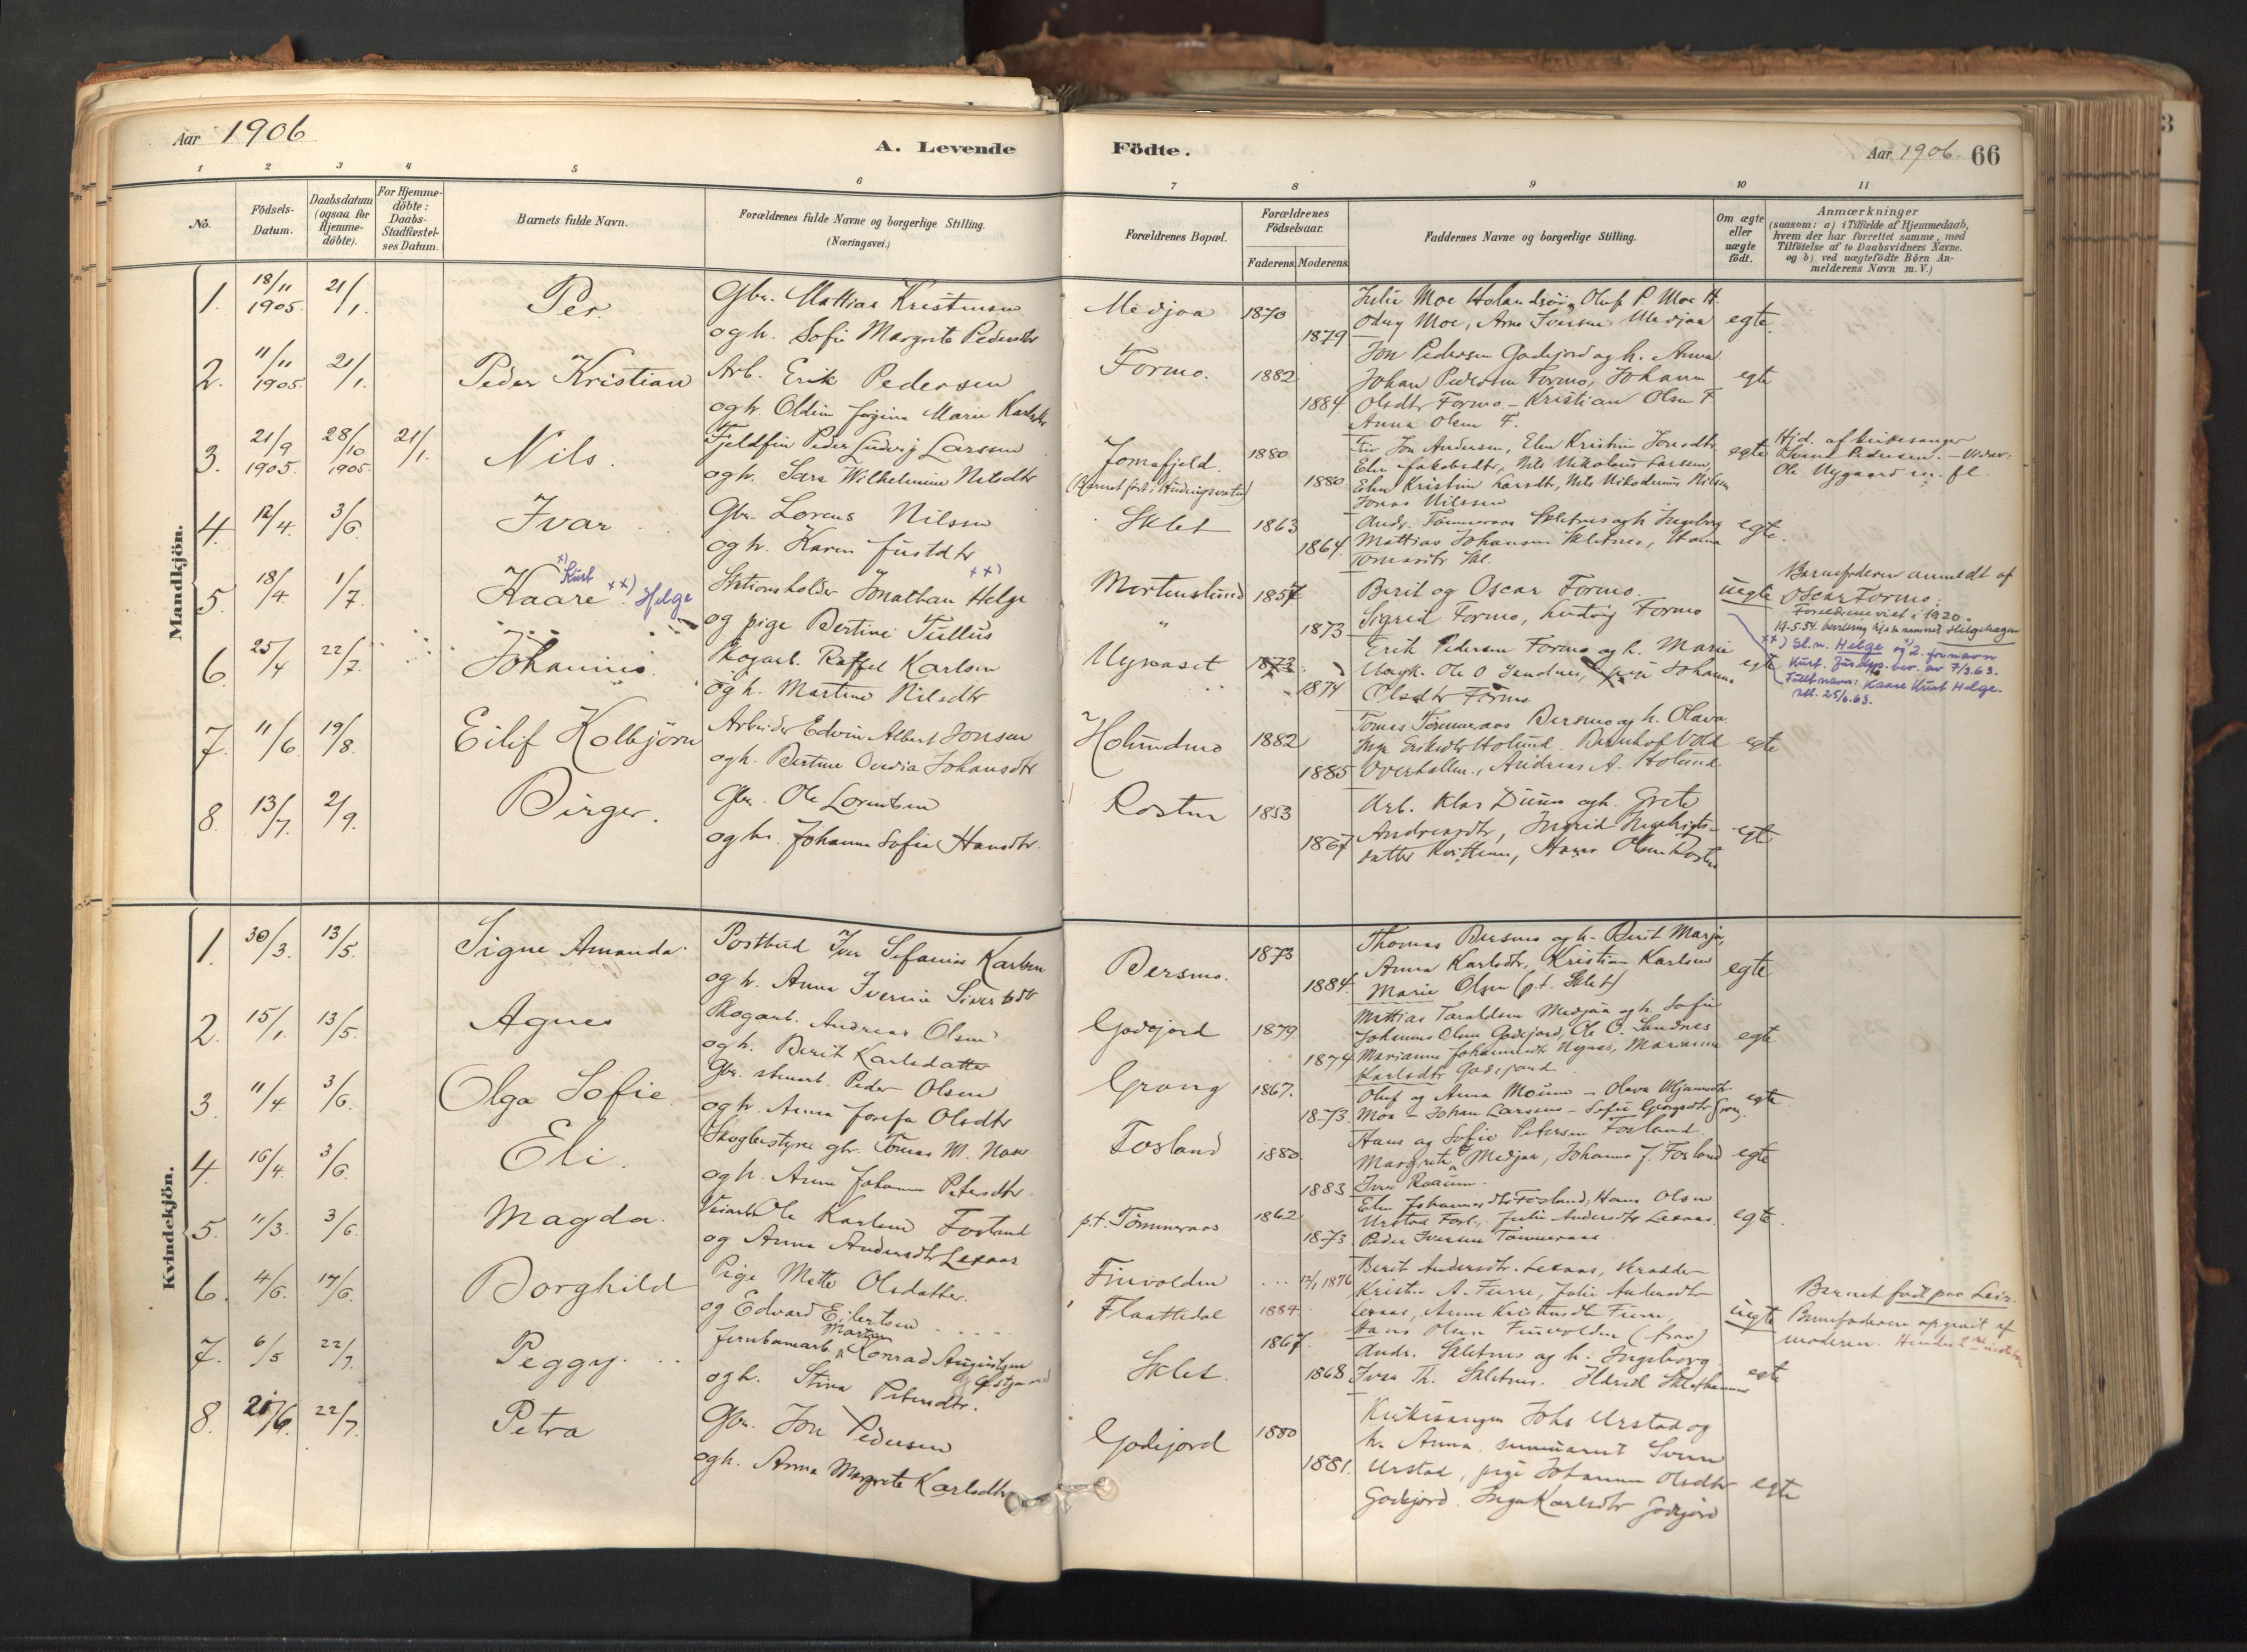 Aar 1906
A. Levende
Födte.
Aar 1906. 66
1 2 3 4 5 6 7 8 9 10 11
No.
Födsels-
Datum.
Daabsdatum
(ogsaa for
Hjemme-
döbte).
For Hjemme-
döbte:
Daabs-
Stadfæstel-
ses Datum.
Barnets fulde Navn.
Forældrenes fulde Navne og borgerlige Stilling.
(Næringsvei.)
Forældrenes Bopæl.
Forældrenes
Födselsaar.
Faderens. Moderens.
Faddernes Navne og borgerlige Stilling.
Om ægte
eller
uægte
födt.
Anmærkninger
(saasom: a) i Tilfælde af Hjemmedaab,
hvem der har forrettet samme, med
Tilföielse af to Daabsvidners Navne.
og b) ved uægtefödte Börn An-
melderens Navn m. V.)
Mandkjön.
1. 18/11 1905. 21/1. Per.
Gbr. Mattias Kristensen
og h. Sofie Margrete Pedersdtr
Medjaa 1870 1879
Julie Moe Holandsöi, Oluf P. Moe H.
Odny Moe, Arne Iversen Medjaa
egte.
2. 11/11 1905. 21/1. Peder Kristian
Arb. Erik Pedersen
og h. Oldine Jörgine Marie Karlsdtr
Formo. 1882 1884
Jon Pedersen Godejord og h. Anna
Johan Pedersen Formo, Johanna
Olsdtr Formo - Kristian Olsen F
Anna Olsen F.
egte
3. 21/9 1905. 28/10 1905. 21/1. Nils.
Fjeldfin Peder Ludvig Larsen
og h. Sara Wilhelmine Nilsdtr
Jomafjeld.
(Barnet födt i Huddingsvatn)
1880 1880
Fin Jon Andersen, Elen Kristine Jonsdtr
Elen Jakobsdtr, Nils Nikolaus Larsen,
Elen Kristine Larsdtr, Nils Nikodemus Nilsen
Jonas Nilssen
egte
Hjd. af kirkesanger
Ole Nygaard m. fl.
4. 12/4. 3/6. Ivar
Gbr. Lorens Nilssen
og h. Karen Justdtr
Sklet 1863 1864.
Andr. Tömmeraas Skletnes og h. Ingeborg
Mattias Johansen Skletnes, Hanna
Tomasdtr Skl.
egte.
5. 18/4. 1/7. Kaare x) Kurt xx) Helge
Stationsholder Jonathan Helge xx)
og pige Bertine Tullus
Mortenslund 1857 1873
Berit og Oscar Formo.
Sigrid Formo, Ludvig Formo
uegte
Barnefaderen anmeldt af
Oscar Formo.
Foreldrene viet i 1920.
xx) Sl.n. Helge og 2. fornavn
Kurt. Jus.dep. bev. av 7/3.63.
Fullt navn: Kaare Kurt Helge.
6. 25/4 22/7. Johannes.
Skogarb. Raffel Karlsen
og h. Martine Nilsdtr
Nyvaset 1873 1874
Erik Pedersen Formo og h. Marie
Ungk. Ole O Sandnes, pige Johanna
Olsdtr Formo
egte
7. 11/6 19/8. Eilif Kolbjörn
Arbeider Edvin Albert Jonsen
og h. Bertine Ovedia Johansdtr
Holundmo 1882 1885
Tomas Tömmeraas Bersmo og h. Olava
Inga Eriksdtr Holund. Bernhof Vold
Overhallen, Andreas A. Holund
egte
8. 13/7. 2/9. Birger.
Gbr. Ole Lorentsen
og h. Johanna Sofie Hansdtr.
Rosten 1853 1867
Arb. Klas Duun og h. Grete
Andreasdtr, Ingrid Ingebrigts-
datter Kvittum, Hans Olsen Rosten
egte
Kvindekjön.
1. 30/3. 13/5. Signe Amanda
Postbud Iver Sefanias Karlsen
og h. Anna Iverine Sivertsdtr
Bersmo. 1873 1884.
Thomas Bersmo og h. Berit Marja,
Anna Karlsdtr, Kristian Karlsen
Marie Olsen (p.t. Sklet)
egte
2. 15/1. 13/5. Agnes
Skogarb. Andreas Olsen
og h. Berit Karlsdatter
Godejord 1879 1874
Mattias Taraldsen Medjaa og h. Sofie
Johannes Olsen Godejord, Ole O. Sandnes
Marianne Johannesdtr Nynes, Marianne
Karlsdtr Godejord
egte
3. 11/4 3/6. Olga Sofie
Gbr. stenarb. Peder Olsen
og h. Anna Josefa Olsdtr
Grong 1867. 1873.
Oluf og Anna Moum - Olava
Moa - Johan Larsens - Sofie Georgsdtr Grong.
egte.
4. 16/4. 3/6. Eli.
Skogbestyrer gbr. Tomas M.
og h. Anna Johanna Petersdtr.
Fosland 1880. 1883
Hans og Sofie Petersen Fosland.
Margrete Medjaa, Johanna J. Fosland
Iver Raaum.
egte
5. 11/3. 3/6. Magda.
Veiarb. Ole Karlsen Fosland
og Anna Andersdtr Lexaas
p.t. Tömmeraas 1862 1873.
Elen Johannesdtr Fosland, Hans Olsen
Urstad Fosl., Julie Andersdtr Lexaas.
Peder Iversen Tömmeraas
egte.
6. 4/6. 17/6. Borghild
Pige Mette Olsdatter.
og Edvard Eilertsen
Finvolden 12/1 1876
Flaattedal 1884
Berit Andersdtr. Lexaas,
Kristen A. Furre, Julie Andersdtr
Lexaas, Anne Kristensdtr Furre,
Hans Olsen Finvolden
uegte
Barnet födt paa
Barnefaderen opgivet af
moderen.
7. 6/5 22/7. Peggy.
Jernbanearb. Martin Konrad Augustsen
og h. Stina Petersdtr.
Sklet. 1867. 1868
Andr. Skletnes og h. Ingeborg.
Ivar Th. Skletnes.
egte
8. 21/6. 22/7. Petra
Gbr. Jon Pedersen
og h. Anna Margrete Karlsdtr
Godejord 1880 1881.
Kirkesanger Johs Urstad og
h. Anna, seminarist Svenn
Urstad, pige Johanna Olsdtr
Godejord. Inga Karlsdtr Godejord
egte